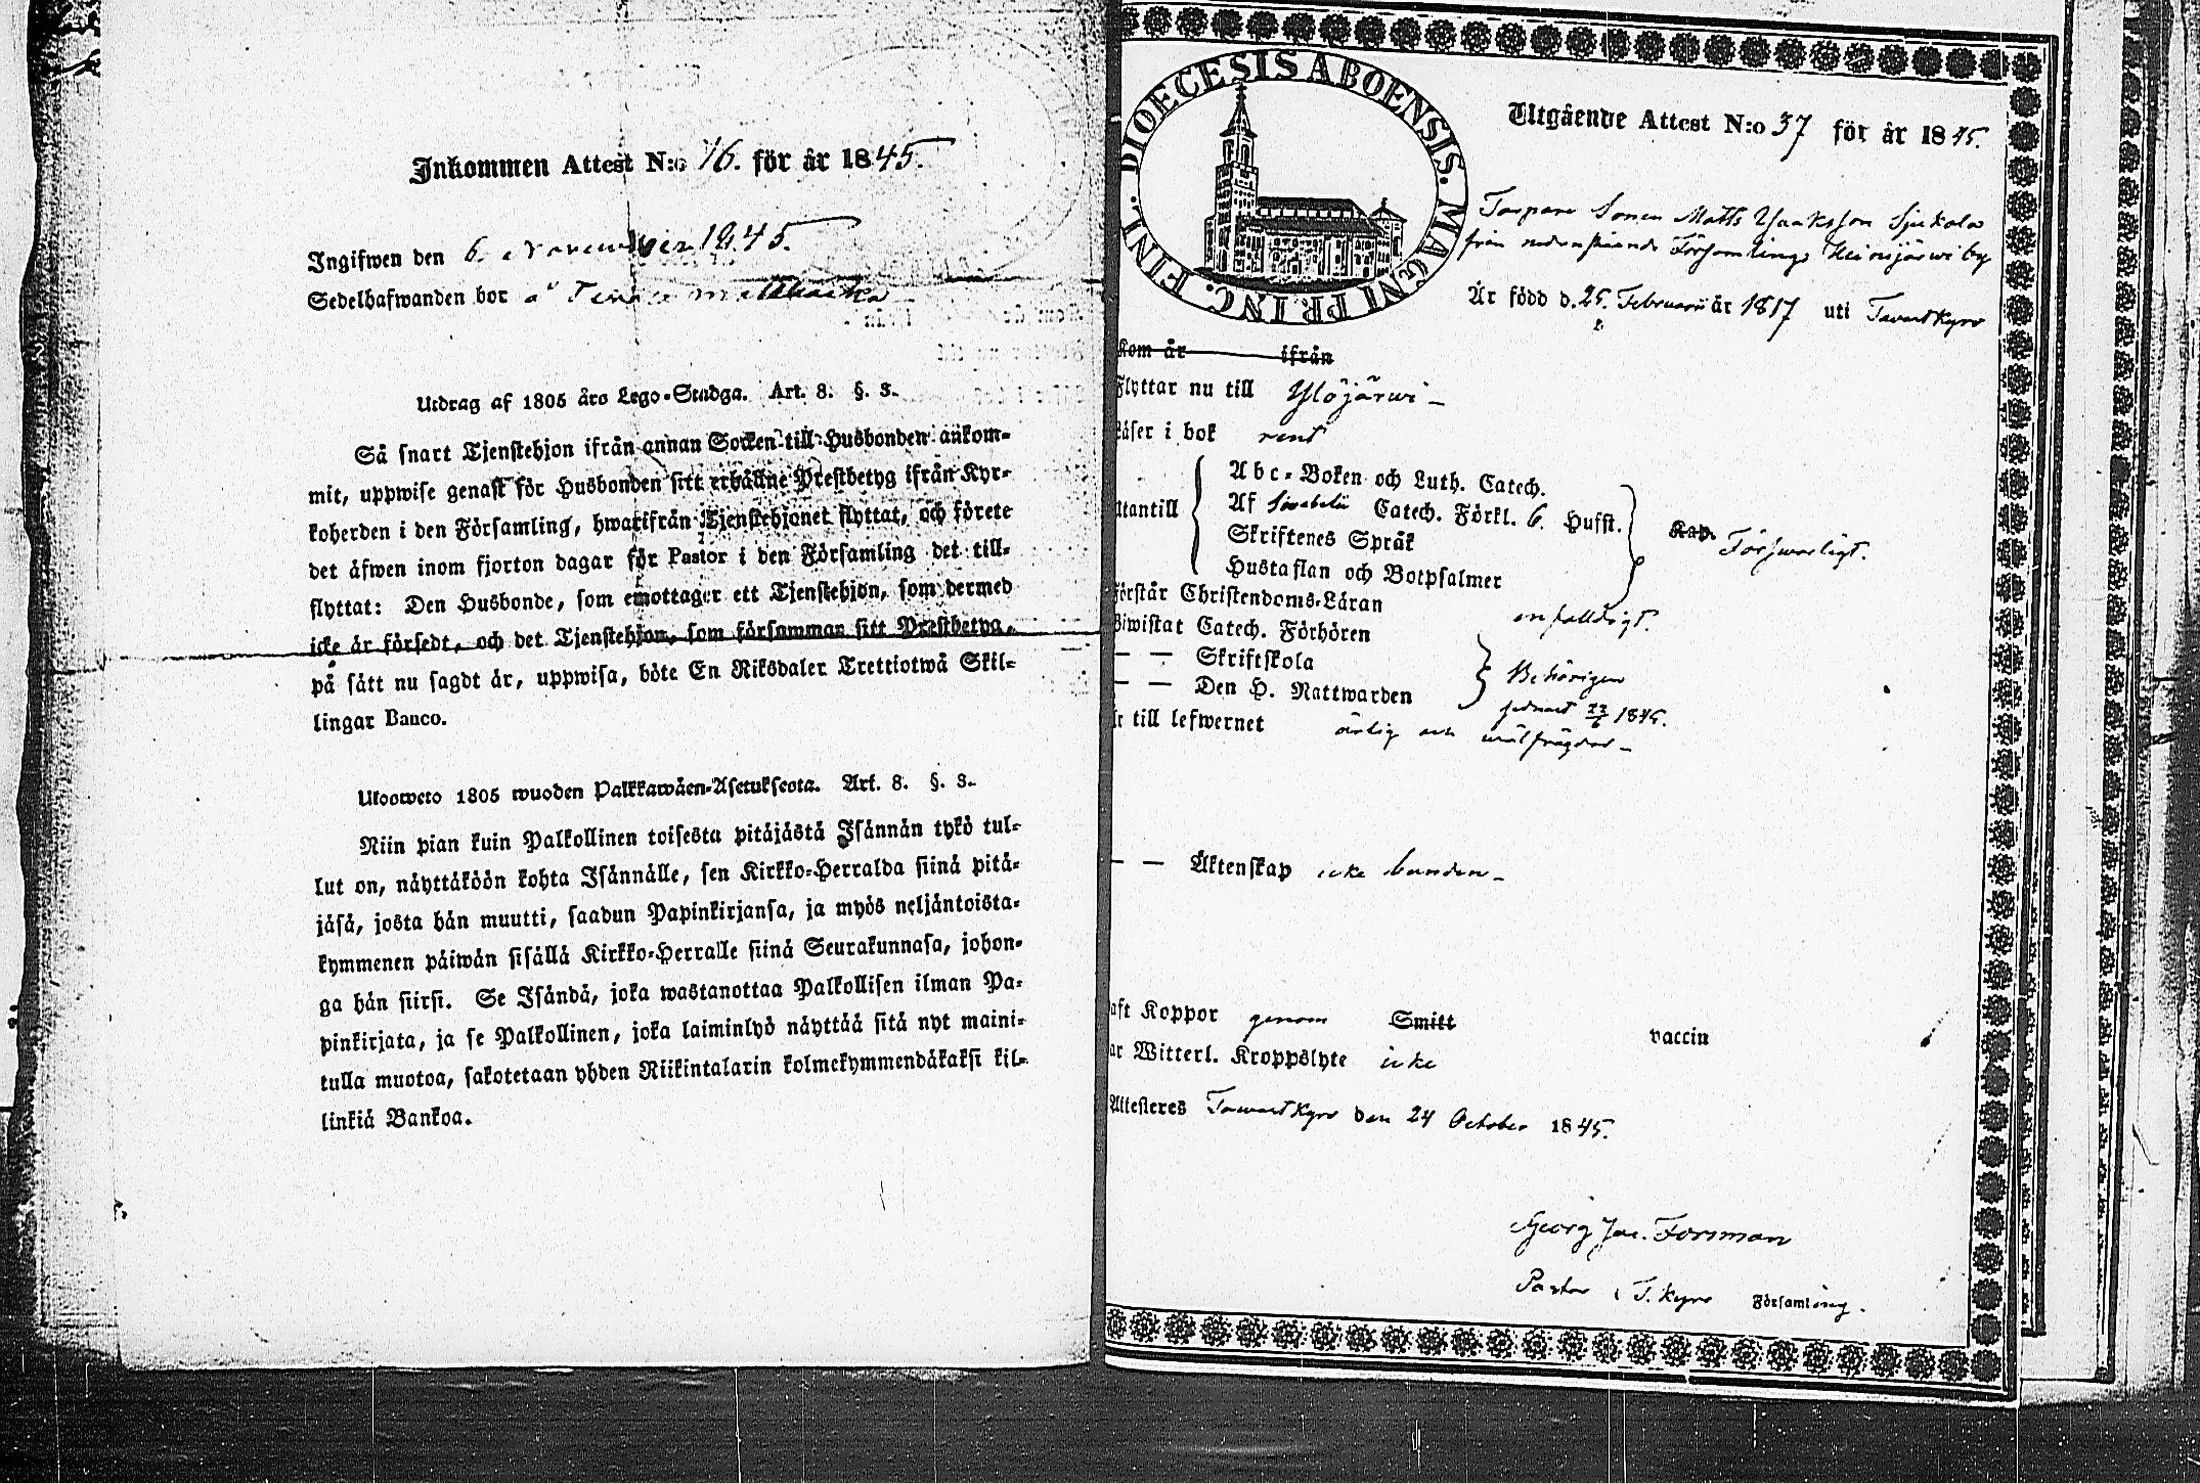 Inkommen Attest N:o 16. för år 1845.
Ingifwen den 6. November 1845.
Sedelhafwanden bor å
Utdrag af 1805 års Lego-Stadga. Art. 8. §. 3.
Så snart Tjenstehjon ifrån annan Socken till Husbonden ankom-
mit, uppwise genast för Husbonden sitt erhållne Prestbetyg ifrån Kyr-
koherden i den Församling, hwarifrån Tjenstehjonet flyttat, och förete
det äfwen inom fjorton dagar för Pastor i den Församling det till-
flyttat: Den Husbonde, som emottager ett Tjenstehjon, som dermed
icke är försedt, och det Tjenstehjon, som försummar sitt Prestbetyg,
på sätt nu sagdt är, uppwisa, böte En Riksdaler Trettiotwå Skil-
lingar Banco.
Ulosweto 1805 wuoden Palkkawäen-Asetuksesta. Art. 8. §. 3.
Niin pian kuin Palkollinen toisesta pitäjästä Isännän tykö tul-
lut on, näyttäköön kohta Isännälle, sen Kirkko-Herralda siinä pitä-
jäsä, josta hän muutti, saadun Papinkirjansa, ja myös neljäntoista-
kymmenen päiwän sisällä Kirkko-Herralle siinä Seurakunnasa, johon-
ga hän siirsi. Se Isändä, joka wastanottaa Palkollisen ilman Pa-
pinkirjata, ja se Palkollinen, joka laiminlyö näyttää sitä nyt maini-
tulla muotoa, sakotetaan yhden Riikintalarin kolmekymmendäkaksi kil-
linkiä Bankoa.
DIOECESIS ABOENSIS. MAGNI PRINC. FINL.
Utgående Attest N:o 37 för år 1845.
Torpare Sonen Matts Isaaksson Sjukola
från nedanstående Församlings Heinijärwi by
Är född d. 25. Februarii år 1817 uti Tavastkyro
Kom år ifrån
Flyttar nu till Ylöjärwi
Läser i bok rent
Utantill
Abc-Boken och Luth. Catech.
Af Swebelii Catech. Förkl. 6. Hufst.
Skriftenes Språk
Hustaflan och Botpsalmer
Kap. Förswarligt.
Förstår Christendoms-Läran enfaldigt.
Biwistat Catech. Förhören
— — Skriftskola
— — Den H. Nattwarden
Behörigen
sednast 22/6 1845.
Är till lefwernet ärlig och wälfrägdad
— — Äktenskap icke bunden
aft Koppor genom Smitt vaccin
ar Witterl. Kroppslyte icke
Attesteres Tawastkyro den 24 October 1845.
Georg Jac. Forsman
Pastor i T.kyro Församling.